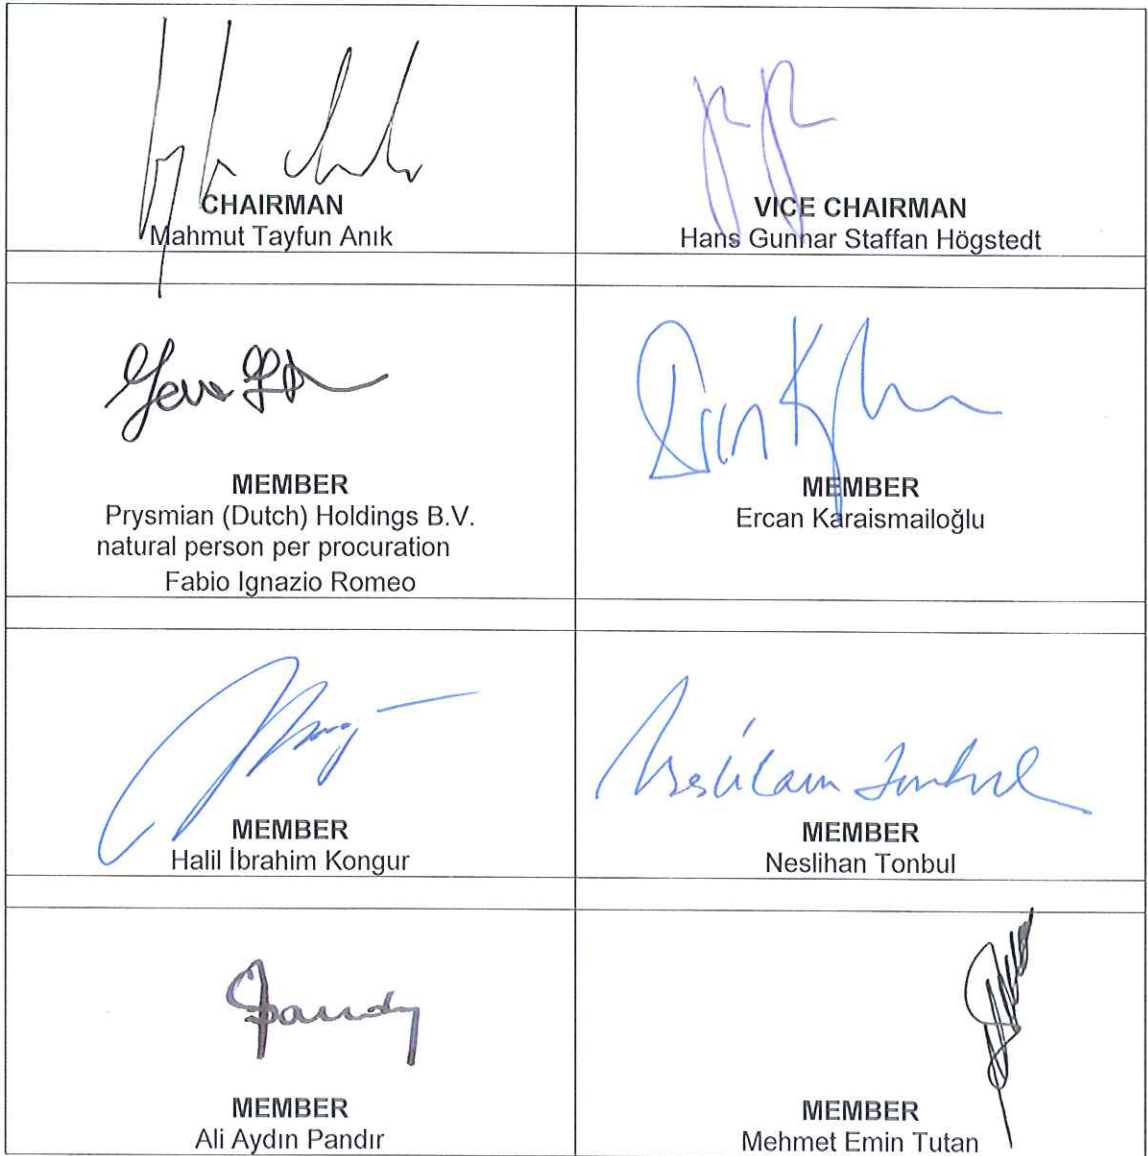 CHAIRMAN
Mahmut Tayfun Anık
VICE CHAIRMAN
Hans Gunnar Staffan Högstedt
MEMBER
Prysmian (Dutch) Holdings B.V.
natural person per procuration
Fabio Ignazio Romeo
MEMBER
Ercan Karaismailoğlu
MEMBER
Halil İbrahim Kongur
Neslihan Tonbul
MEMBER
Neslihan Tonbul
Pandır
MEMBER
Ali Aydın Pandır
MEMBER
Mehmet Emin Tutan